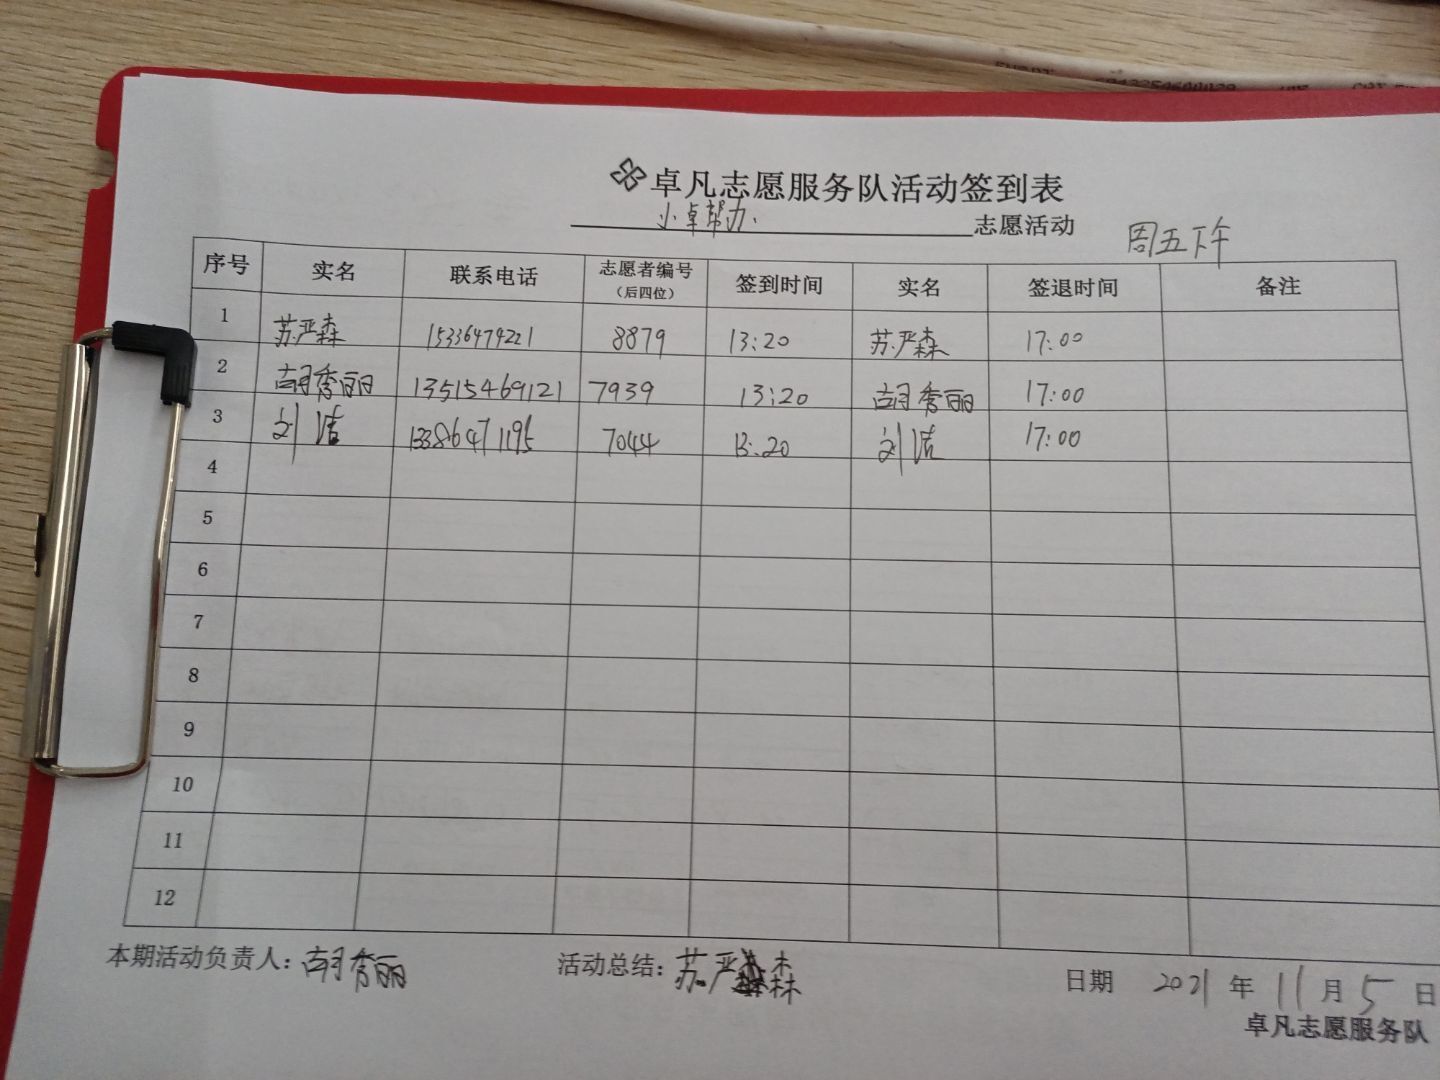 卓凡志愿服务队活动签到表
小卓帮办 志愿活动 周五下午
序号 实名 联系电话 志愿者编号（后四位） 签到时间 实名 签退时间 备注
1 苏严森 15336479221 8879 13:20 苏严森 17:00
2 胡秀丽 13515469121 7939 13:20 胡秀丽 17:00
3 刘洁 13386471195 7044 13:20 刘洁 17:00
4
5
6
7
8
9
10
11
12
本期活动负责人：胡秀丽 活动总结：苏严森 日期 2021 年 11 月 5 日
卓凡志愿服务队